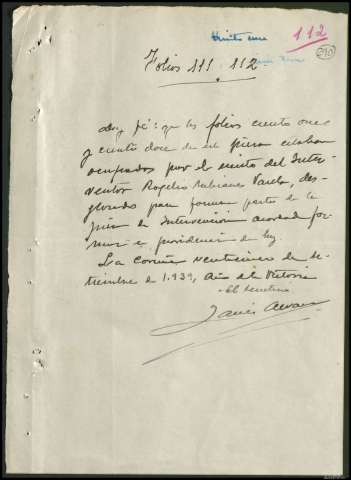 112
290
Folios 111 - 112
Doy fé: que los folios ciento once
y ciento doce de esta pieza estaban
ocupados por el escrito del Inter-
ventor Rogelio Varela, des-
glosado para formar parte de la
pieza de Intervención acordado for-
mar en providencia de hoy.
La Coruña veintinueve de Se-
tiembre de 1.939, Año de la Victoria
El Secretario